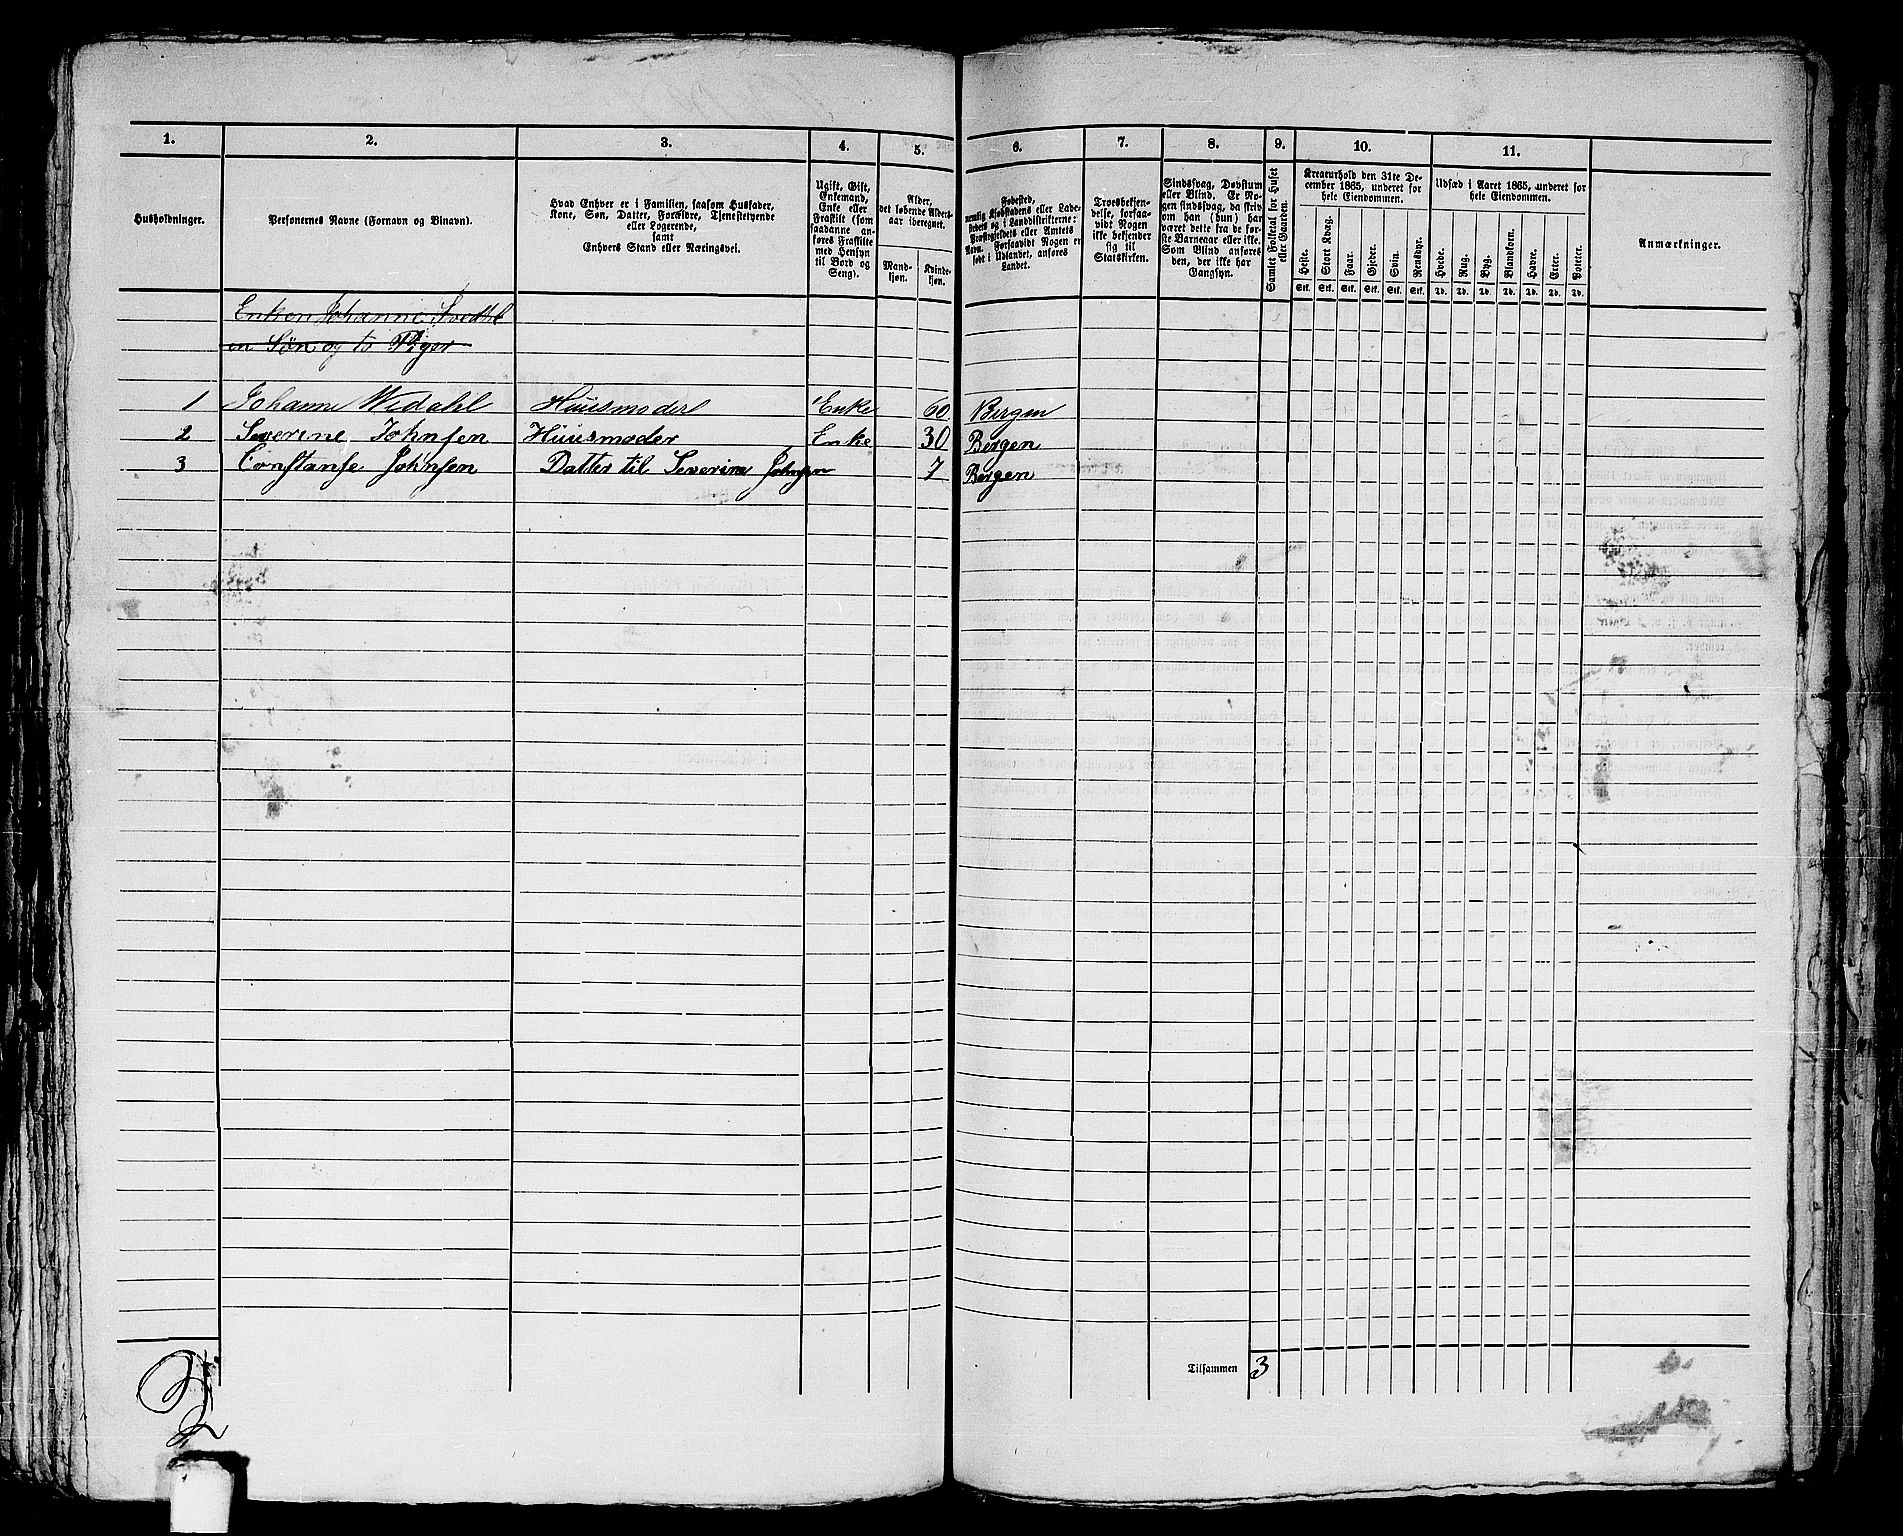 1. 2. 3. 4. 5. 6. 7. 8. 9. 10. 11.
Husholdninger.
Personernes Navne (Fornavn og Binavn).
Hvad Enhver er i Familien, saasom Husfader,
Kone, Søn, Datter, Forældre, Tjenestetyende
eller Logerende,
samt
Enhvers Stand eller Næringsvei.
Ugift, Gift,
Enkemand,
Enke eller
Fraskilt (som
saadanne an-
føres Fraskilte
med Hensyn
til Bord og
Seng).
Alder,
det løbende Alders-
aar iberegnet.
Mand-
kjøn.
Kvinde-
kjøn.
Fødested,
nemlig Kjøbstadens eller Lade-
stedets og i Landdistrikterne:
Præstegjeldets eller Amtets
Navn. Forsaavidt Nogen er
født i Udlandet, anføres
Landet.
Troesbekjen-
delse, forsaa-
vidt Nogen
ikke bekjender
sig til
Statskirken.
Sindssvag, Døvstum
eller Blind. Er No-
gen sindssvag, da skriv
om han (hun) har
været dette fra de før-
ste Barneaar eller ikke.
Som Blind anføres
den, der ikke har
Gangsyn.
Samlet Folketal for Huset
eller Gaarden.
Kreaturhold den 31te De-
cember 1865, underet for
hele Eiendommen.
Heste. Stort Kvæg. Faar. Gjeder. Svin. Rensdyr.
Stk. Stk. Stk. Stk. Stk. Stk.
Udsæd i Aaret 1865, underet for
hele Eiendommen.
Hvede. Rug. Byg. Blandkorn. Havre. Erter. Poteter.
Td. Td. Td. Td. Td. Td. Td.
Anmærkninger.
Enken Johanne
en Søn og to Piger
1 Johanne Wedahl Huusmoder Enke 60 Bergen
2 Severine Johnsen Huusmoder Enke 30 Bergen
3 Constanse Johnsen Datter til Severine Johnsen 7 Bergen
Tilsammen 3